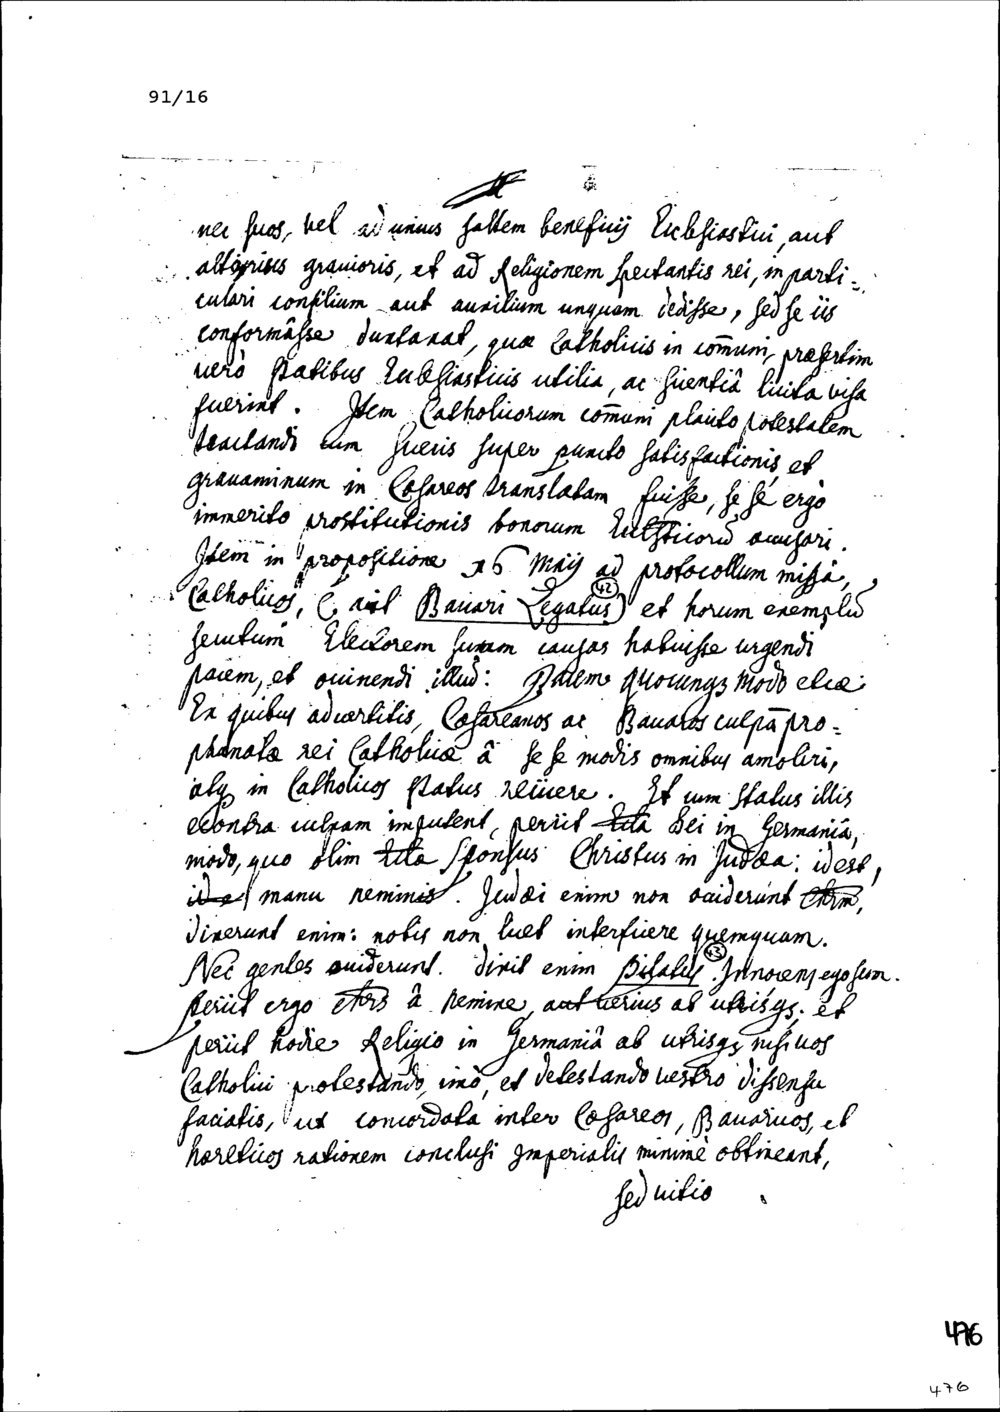 91/16
nec suos, vel ad unius saltem beneficij Ecclesiastici, aut
alterius gravioris, et ad Religionem spectantis rei, in parti=
culari consilium aut auxilium unquam dedisse, sed se iis
conformâsse duntaxat, quæ Catholicis in com̄uni, præsertim
verò statibus Ecclesiasticis utilia, ac scientiâ licita visa
fuerint. Item Catholicorum com̄uni potestatem
tractandi cum Suecis super puncto satisfactionis et
gravaminum in Cæsareos translatam fuisse, se se ergò
immerito prostitutionis bonorum Ecclsticorū accusari.
Item in propositione 16 Maij ad protocollum missâ,
Catholicos, (: ait Bavari Legatus) (42) et horum exemplū
secutum Electorem suum causas habuisse urgendi
pacem, et occinendi illud: Pacem quocunqȝ modo etcæ
Ex quibus advertitis, Cæsareanos ac Bavaros culpā pro=
phanatæ rei Catholicæ â se se modis omnibus amoliri,
atqȝ in Catholicos status reiicere. Et cum status illis
econtra culpam imputent, periit Dei in Germaniâ,
modo, quo olim sponsus Christus in Judæa: id est,
manu neminis. Judæi enim non occiderunt Chrm,
dixerunt enim: nobis non licet interficere quemquam.
Nec gentes occiderunt. dixit enim Pilatus (43). Innocens ego sum.
Periit ergo Chrs â nemine, aut verius ab utrisqȝ; et
periit hodie Religio in Germaniâ ab utrisqȝ, nisi vos
Catholici protestando, imò, et detestando vestro dissensu
faciatis, ut concordata inter Cæsareos, Bavaricos, et
hæreticos rationem conclusi Imperialis minimè obtineant,
sed vitio
476
476